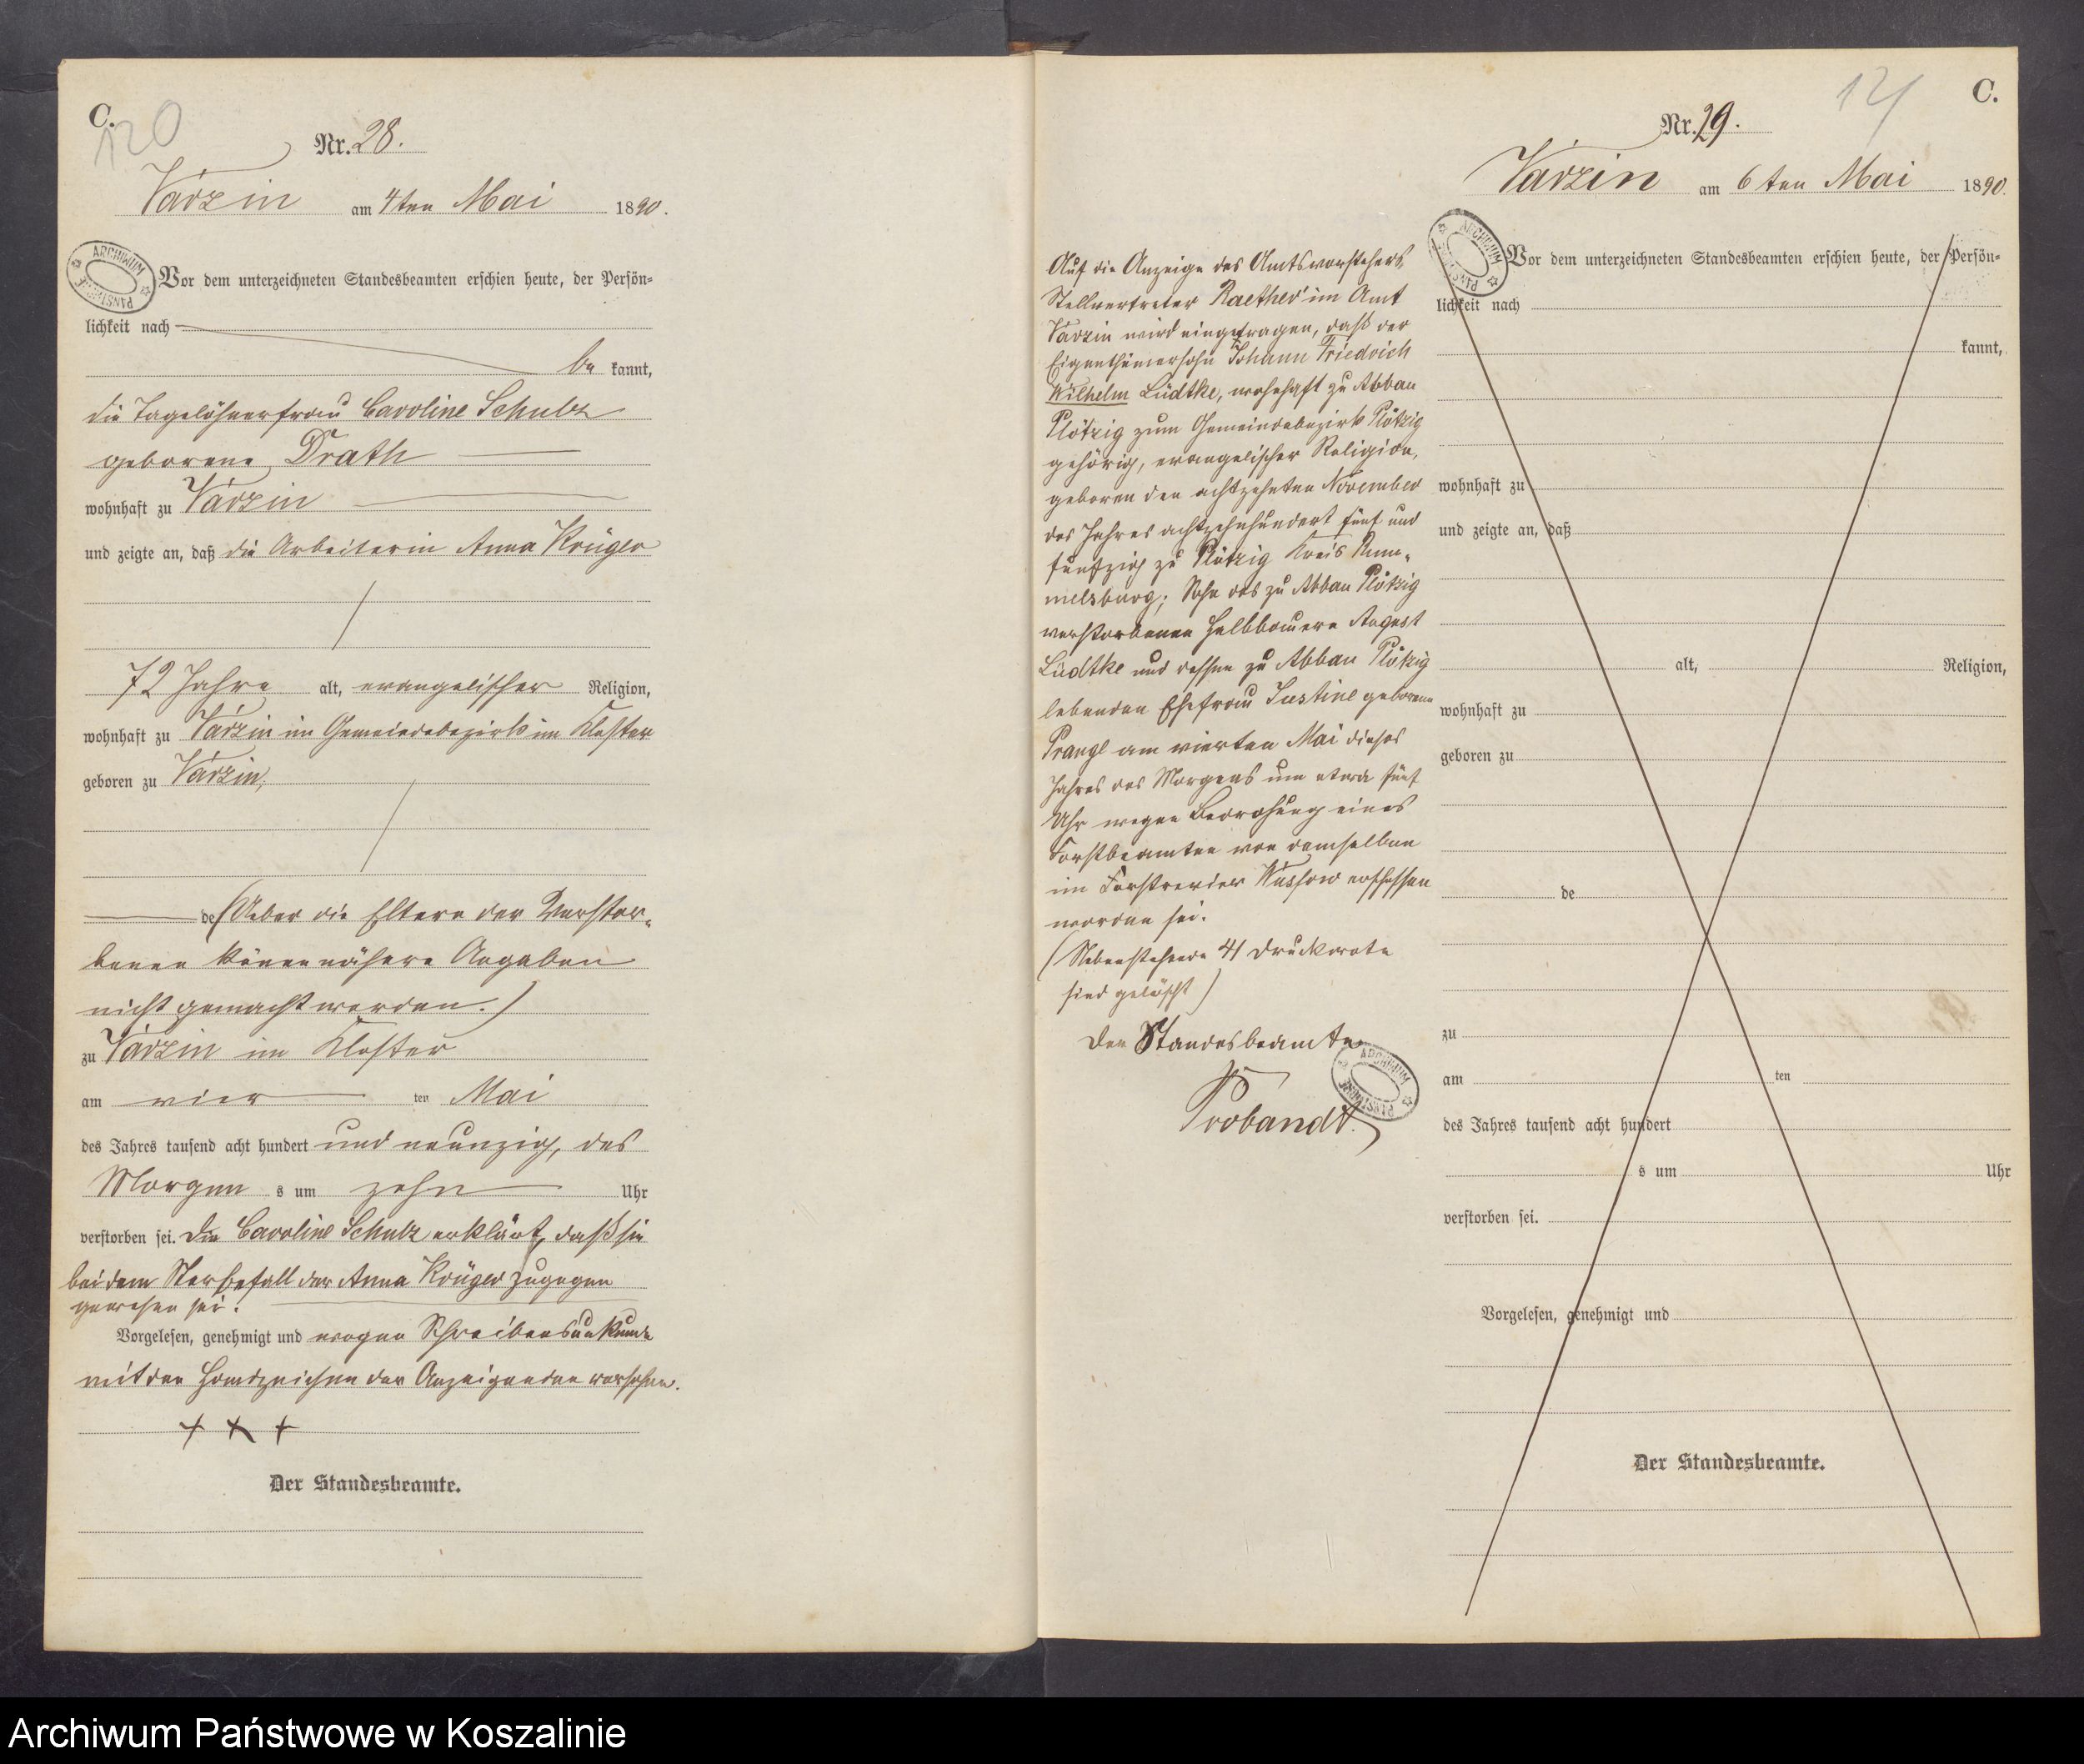 C.
120
Nr. 28.
Varzin am 4ten Mai 1890.
Vor dem unterzeichneten Standesbeamten erschien heute, der Persön=
lichkeit nach
be kannt,
die Tagelöhnerfrau Caroline Schulz
geborene Drath
wohnhaft zu Varzin
und zeigte an, daß die Arbeiterin Anna Krüger
72 Jahre alt, evangelischer Religion,
wohnhaft zu Varzin im Gemeindebezirk im Kloster
geboren zu Varzin,
de (Ueber die Eltern der Verstor=
benen können nähere Angaben
nicht gemacht werden.)
zu Varzin im Kloster
am vier ten Mai
des Jahres tausend acht hundert und neunzig, des
Morgen s um zehn Uhr
verstorben sei. Die Caroline Schulz erklärt, daß sie
bei dem Sterbefall der Anna Krüger zugegen
gewesen sei.
Vorgelesen, genehmigt und wegen Schreibensunkunde
mit den Handzeichen der Anzeigenden versehen.
+ + +
Der Standesbeamte.
121
C.
Nr. 29.
Varzin am 6ten Mai 1890.
Auf die Anzeige des Amtsvorstehers
Stellvertreter Raether im Amt
Varzin wird eingetragen, daß der
Eigenthümersohn Johann Friedrich
Wilhelm Lüdtke, wohnhaft zu Abbau
Plötzig zum Gemeindebezirk Plötzig
gehörig, evangelischer Religion,
geboren den achtzehnten November
des Jahres achtzehnhundert fünf und
fünfzig zu Plötzig Kreis Rum=
melsburg; Sohn des zu Abbau Plötzig
verstorbenen Halbbauern August
Lüdtke und dessen zu Abbau Plötzig
lebenden Ehefrau Justine geborene
am vierten Mai dieses
Jahres des Morgens um etwa fünf
Uhr wegen Bedrohung eines
Forstbeamten von demselben
im Forstrevier Wussow erschossen
worden sei.
(Nebenstehende 41 Druckworte
sind gelöscht)
Der Standesbeamte
Probandt.
Vor dem unterzeichneten Standesbeamten erschien heute, der Persön=
lichkeit nach
kannt,
wohnhaft zu
und zeigte an, daß
alt, Religion,
wohnhaft zu
geboren zu
de
zu
am ten
des Jahres tausend acht hundert
s um Uhr
verstorben sei.
Vorgelesen, genehmigt und
Der Standesbeamte.
Archiwum Państwowe w Koszalinie